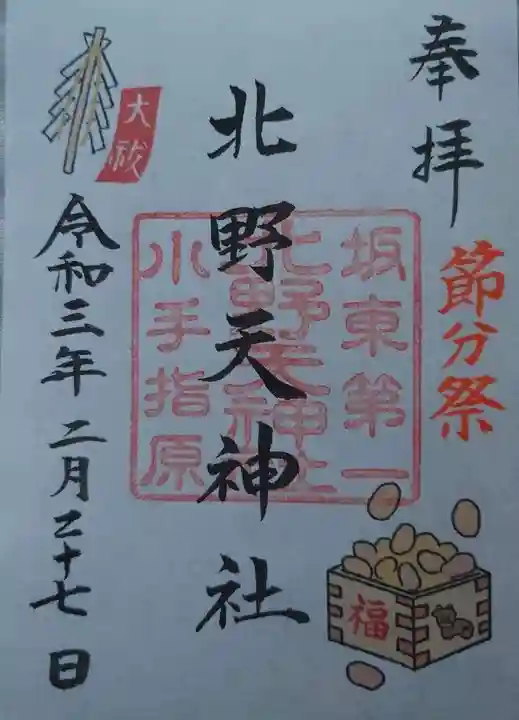 奉拝
節分祭
福
坂東第一
北野天神社
小手指原
北野天神社
大祓
令和三年二月二十七日